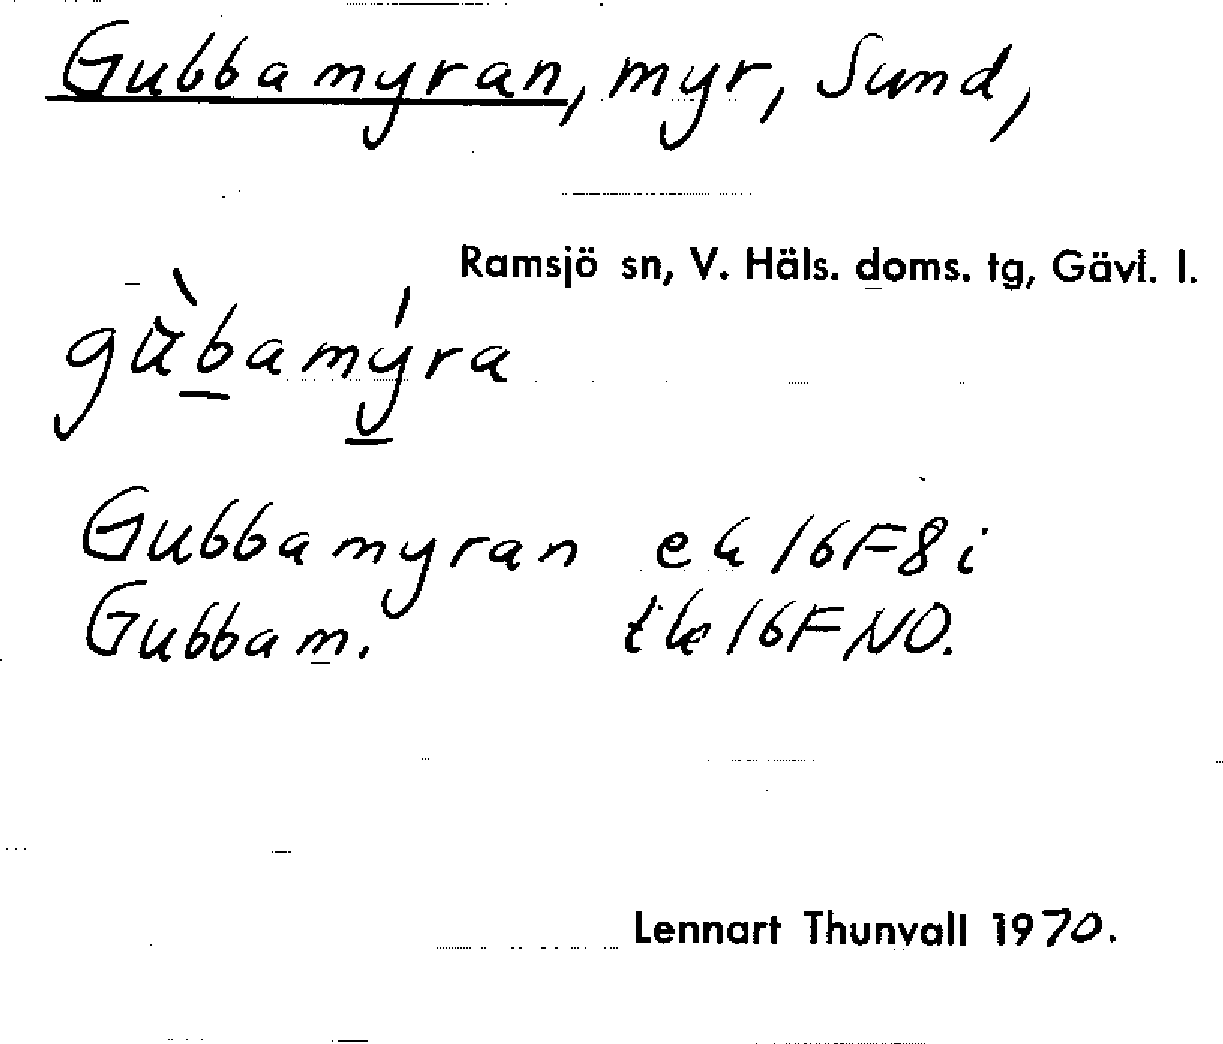 Gubbamyran, myr, Sund,
Ramsjö sn, V. Häls. doms. tg, Gävl. l.
gùbamýra
Gubbamyran ek 16F8i
Gubbam. tk 16F NO.
Lennart Thunvall 1970.